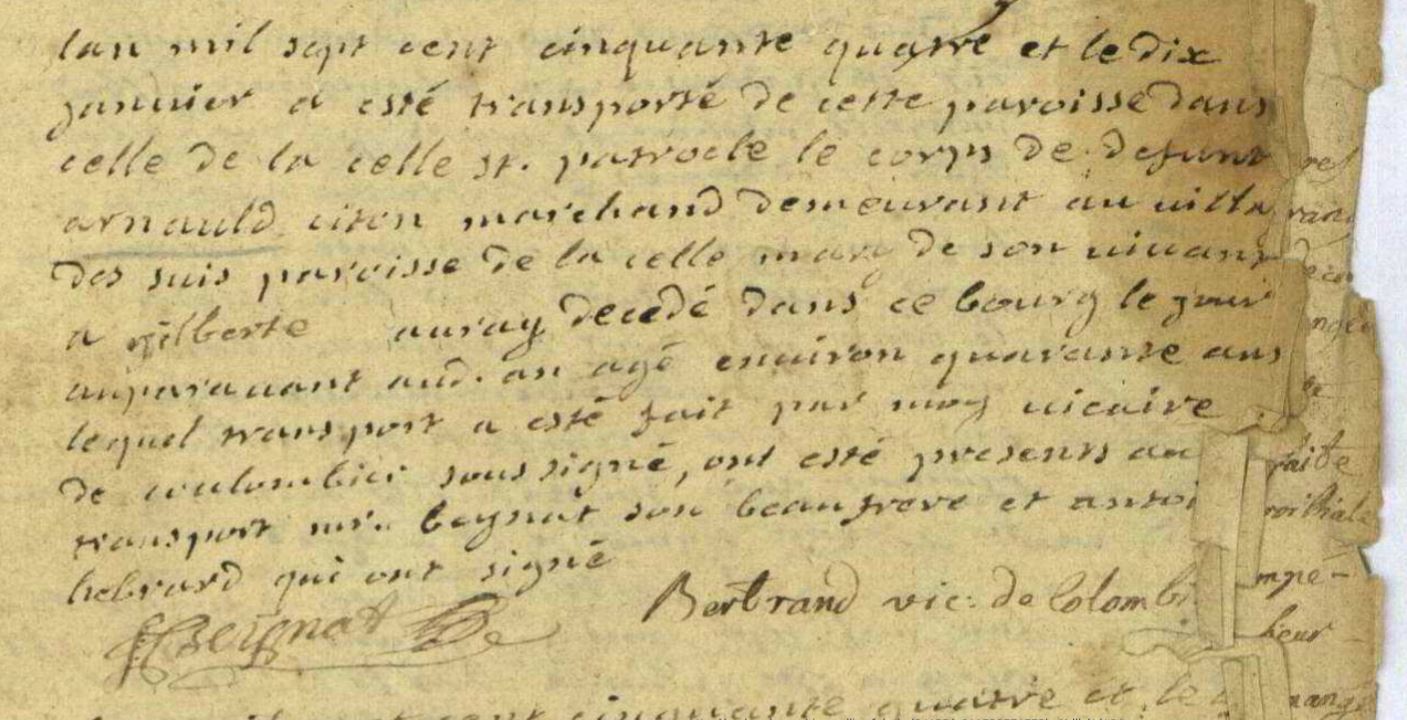 lan mil sept cent cinquante quatre et le dix
januier a esté transporté de cette paroisse dans
celle de la celle st. patrocle le corps de defunt
arnauld citen marchand demeurant au villa
des suis paroisse de la celle mary de son uiuant
a gilberte auray decedé dans ce bourg le jour
auparauant aud. an agé enuiron quarante ans
lequel transport a esté fait par moy uicaire
de coulombier soussigné, ont esté presents au
transport mr. beynat son beaufrere et antoi
hebrard qui ont signé
Bertrand vic. de Colombi
Beignat
cent cinquante quatre et le
faite
mpé-